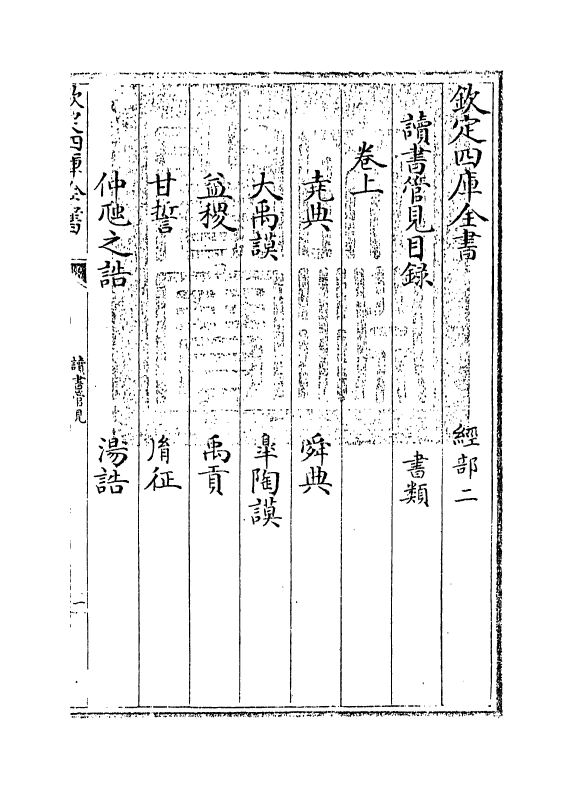 欽定四庫全書　經部二
讀書管見目錄　書類
卷上
堯典　舜典
大禹謨　臯陶謨
益稷　禹貢
甘誓　胤征
仲虺之誥　湯誥
欽定四庫全書　讀書管見　一